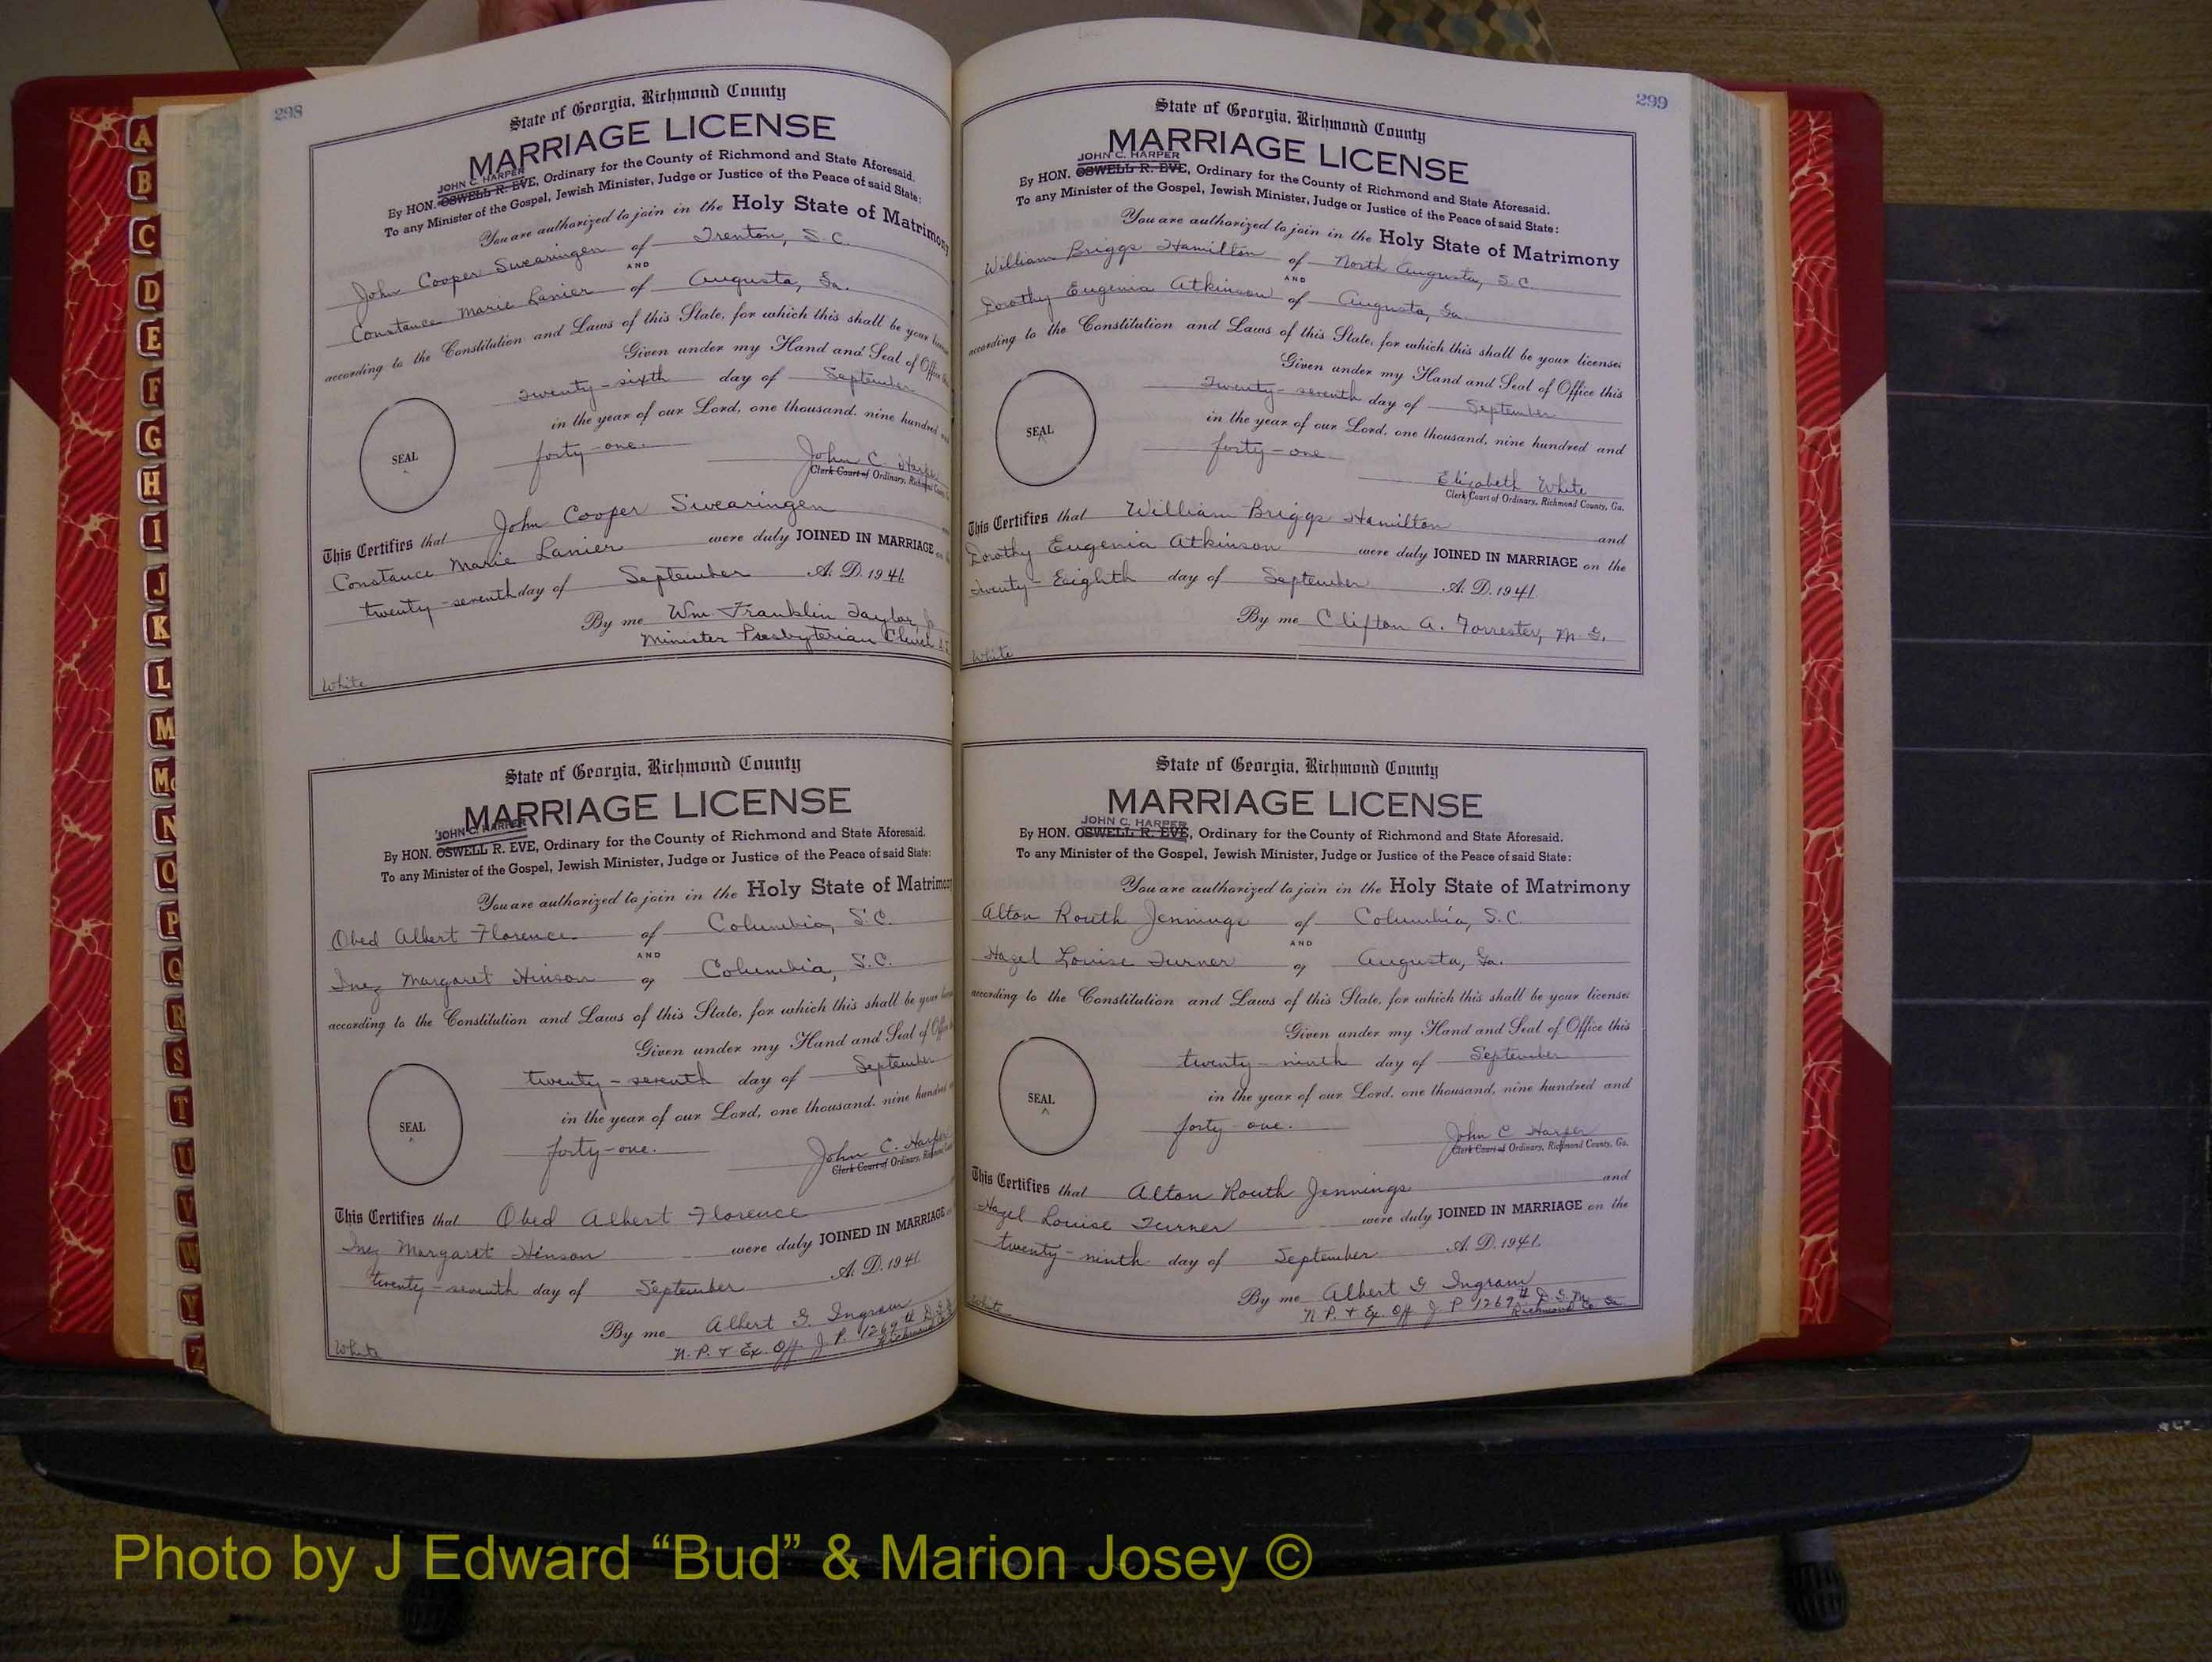 298
State of Georgia, Richmond County
MARRIAGE LICENSE
JOHN C. HARPER
By HON. OSWELL R. EVE, Ordinary for the County of Richmond and State Aforesaid.
To any Minister of the Gospel, Jewish Minister, Judge or Justice of the Peace of said State:
You are authorized to join in the Holy State of Matrimony
John Cooper Swearingen of Trenton, S.C.
AND
Constance Marie Lanier of Augusta, Ga.
according to the Constitution and Laws of this State, for which this shall be your
Given under my Hand and Seal of Office
twenty-sixth day of September
in the year of our Lord, one thousand, nine hundred
forty-one.
SEAL
John C. Harper
Clerk Court of Ordinary, Richmond County
This Certifies that John Cooper Swearingen
Constance Marie Lanier were duly JOINED IN MARRIAGE
twenty-seventh day of September A. D. 1941.
By me Wm. Franklin Taylor
Minister Presbyterian
White
State of Georgia, Richmond County
MARRIAGE LICENSE
JOHN C. HARPER
By HON. OSWELL R. EVE, Ordinary for the County of Richmond and State Aforesaid.
To any Minister of the Gospel, Jewish Minister, Judge or Justice of the Peace of said State:
You are authorized to join in the Holy State of Matrimony
Obed Albert Florence of Columbia, S.C.
AND
Inez Margaret Hinson of Columbia, S.C.
according to the Constitution and Laws of this State, for which this shall be your
Given under my Hand and Seal of
twenty-seventh day of September
in the year of our Lord, one thousand, nine hundred
forty-one.
SEAL
John C. Harper
Clerk Court of Ordinary,
This Certifies that Obed Albert Florence
Inez Margaret Hinson were duly JOINED IN MARRIAGE
twenty-seventh day of September A. D. 1941.
By me Albert G. Ingram
N. P. & Ex. Off. J. P. 1269th
Richmond
White
299
State of Georgia, Richmond County
MARRIAGE LICENSE
JOHN C. HARPER
By HON. OSWELL R. EVE, Ordinary for the County of Richmond and State Aforesaid.
To any Minister of the Gospel, Jewish Minister, Judge or Justice of the Peace of said State:
You are authorized to join in the Holy State of Matrimony
William Briggs Hamilton of North Augusta, S.C.
AND
Dorothy Eugenia Atkinson of Augusta, Ga.
according to the Constitution and Laws of this State, for which this shall be your license:
Given under my Hand and Seal of Office this
Twenty-seventh day of September
in the year of our Lord, one thousand, nine hundred and
forty-one
SEAL
Elizabeth White
Clerk Court of Ordinary, Richmond County, Ga.
This Certifies that William Briggs Hamilton and
Dorothy Eugenia Atkinson were duly JOINED IN MARRIAGE on the
twenty-Eighth day of September A. D. 1941.
By me Clifton A. Forrester, M. G.
White
State of Georgia, Richmond County
MARRIAGE LICENSE
JOHN C. HARPER
By HON. OSWELL R. EVE, Ordinary for the County of Richmond and State Aforesaid.
To any Minister of the Gospel, Jewish Minister, Judge or Justice of the Peace of said State:
You are authorized to join in the Holy State of Matrimony
Alton Routh Jennings of Columbia, S.C.
AND
Hazel Louise Turner of Augusta, Ga.
according to the Constitution and Laws of this State, for which this shall be your license:
Given under my Hand and Seal of Office this
twenty-ninth day of September
in the year of our Lord, one thousand, nine hundred and
forty-one.
SEAL
John C Harper
Clerk Court of Ordinary, Richmond County, Ga.
This Certifies that Alton Routh Jennings and
Hazel Louise Turner were duly JOINED IN MARRIAGE on the
twenty-ninth day of September A. D. 1941.
By me Albert G Ingram
N. P. & Ex. Off J P 1269th D. G. M.
Richmond Co Ga.
White
A
B
C
D
E
F
G
H
I
J
K
L
M
Mc
N
O
P
Q
R
S
T
U
V
W
Y
Z
Photo by J Edward “Bud” & Marion Josey ©